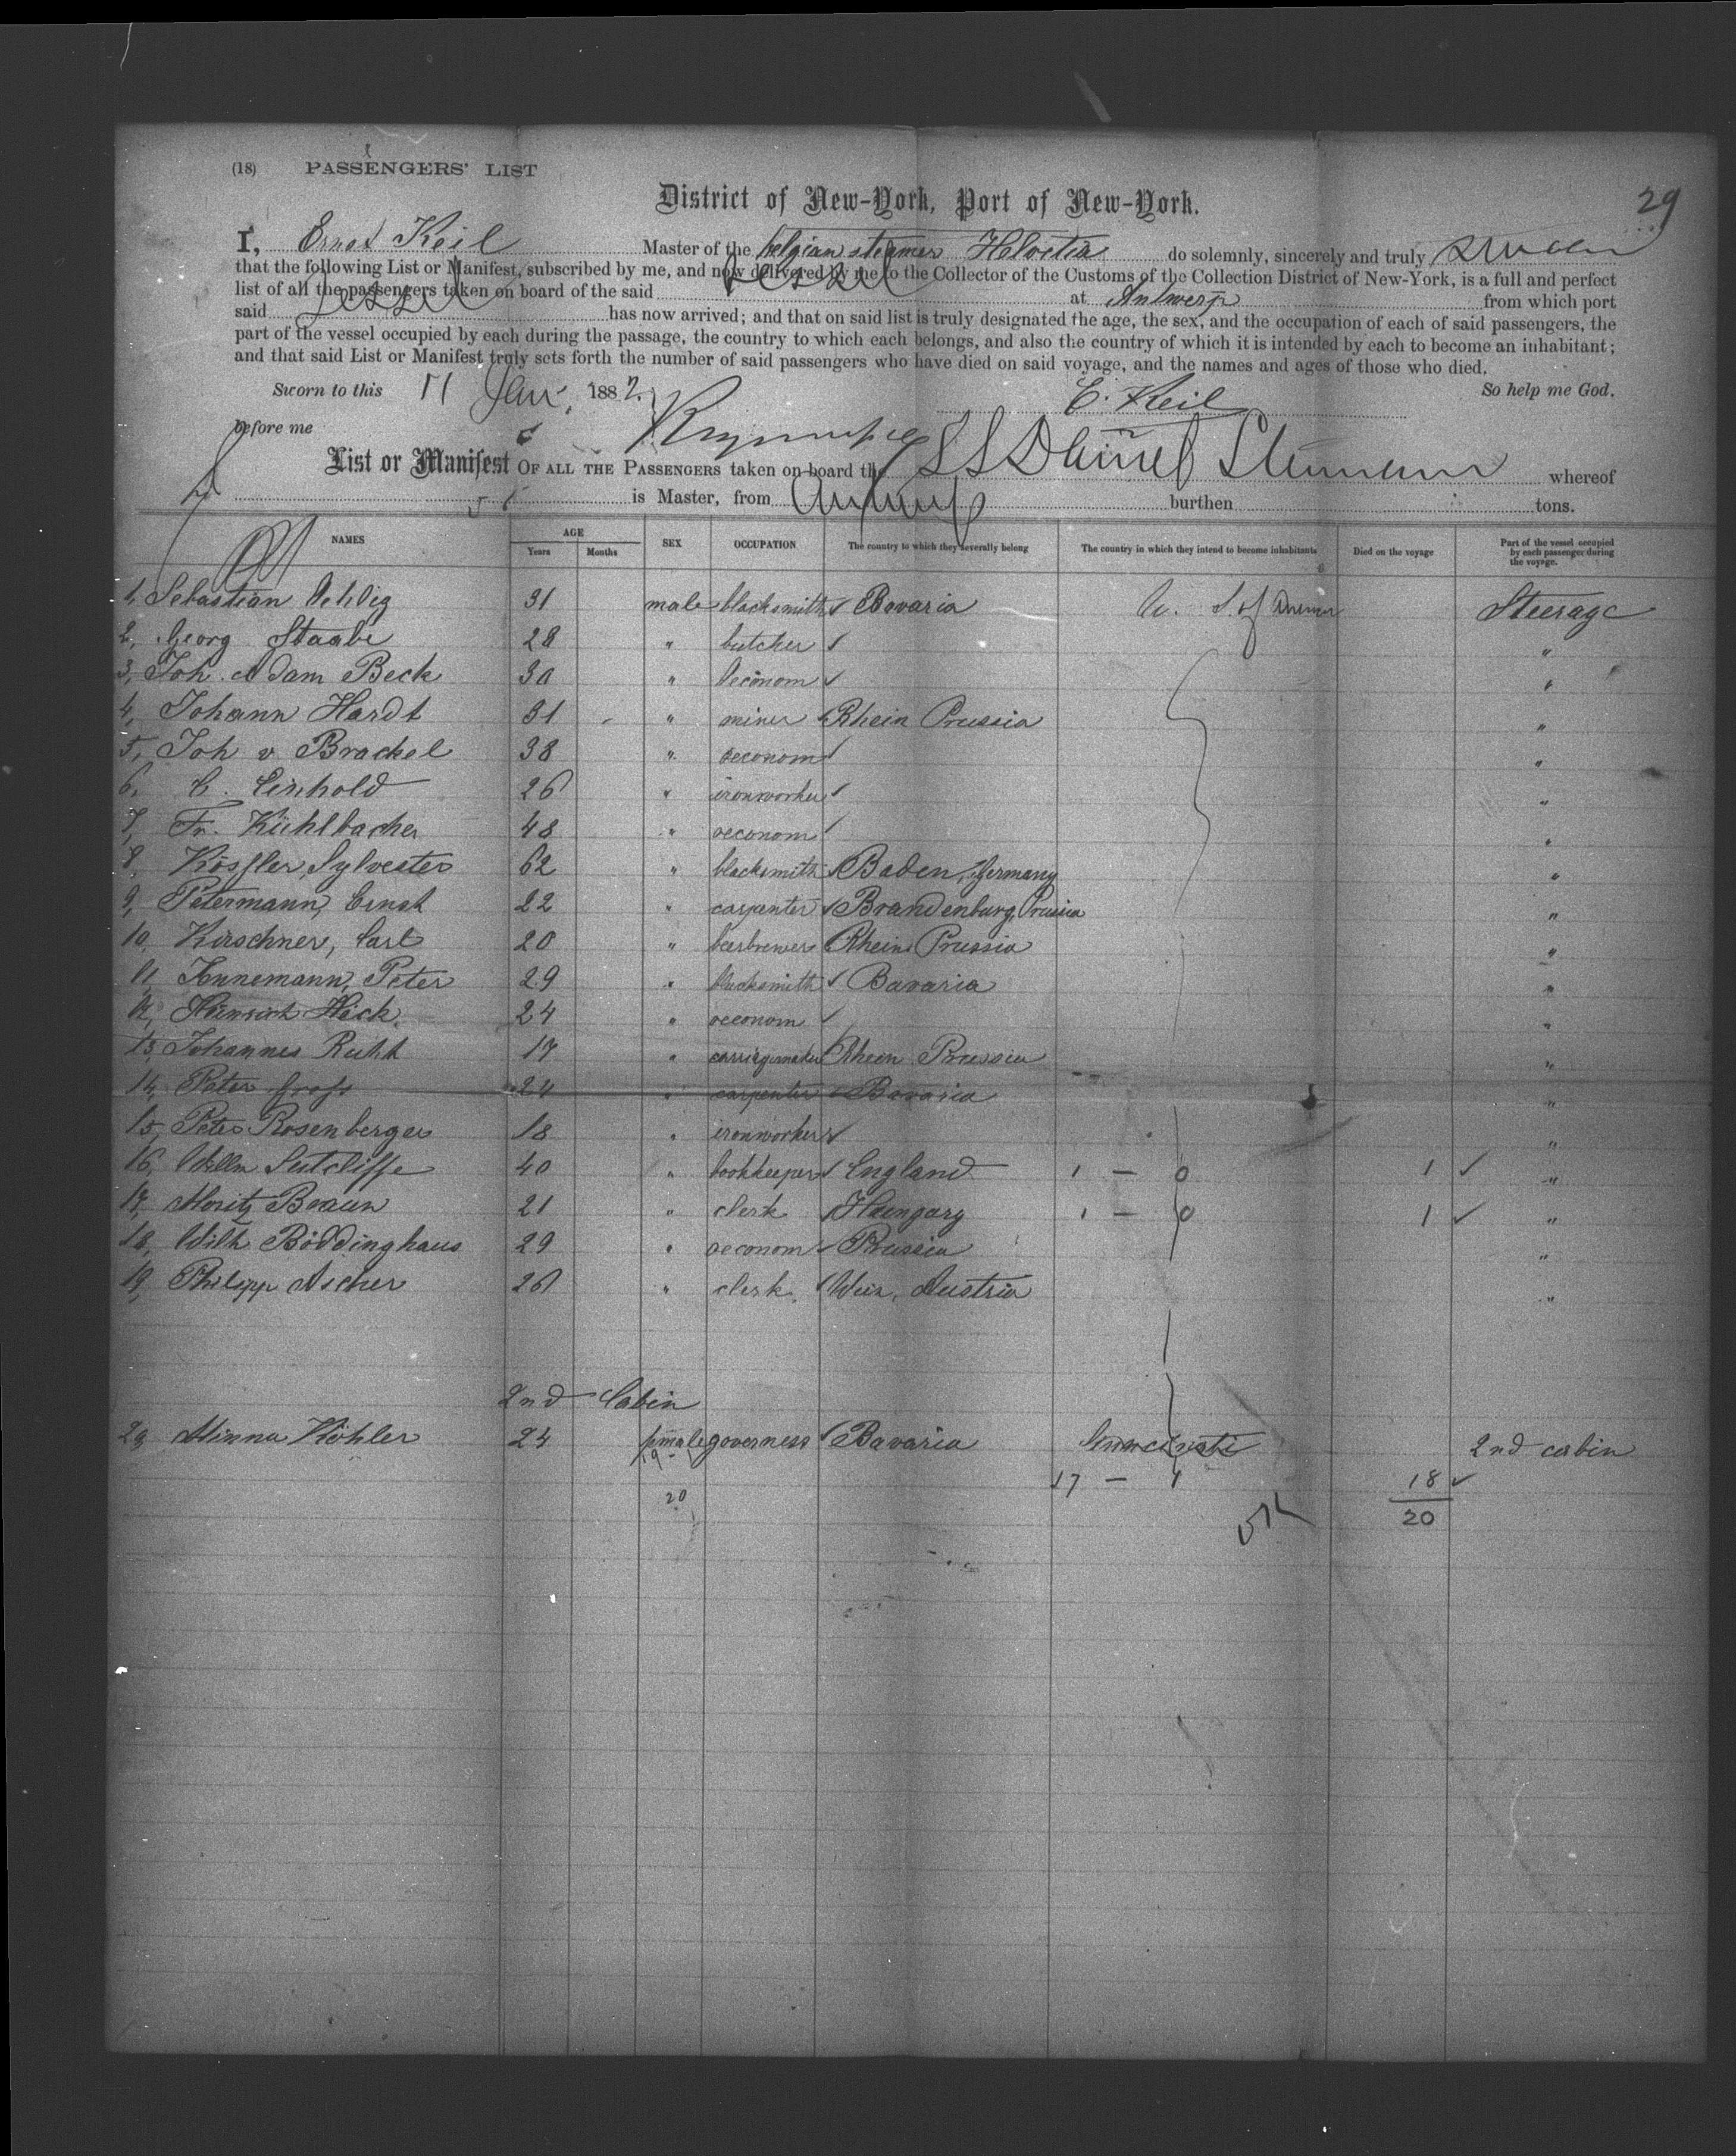 (18) PASSENGERS' LIST
29
District of New-York, Port of New-York.
I, Ernst Keil Master of the belgian steamer Helvetia do solemnly, sincerely and truly swear
that the following List or Manifest, subscribed by me, and now delivered by me to the Collector of the Customs of the Collection District of New-York, is a full and perfect
list of all the passengers taken on board of the said vessel at Antwerp from which port
said vessel has now arrived; and that on said list is truly designated the age, the sex, and the occupation of each of said passengers, the
part of the vessel occupied by each during the passage, the country to which each belongs, and also the country of which it is intended by each to become an inhabitant;
and that said List or Manifest truly sets forth the number of said passengers who have died on said voyage, and the names and ages of those who died.
Sworn to this 11 Jan, 1882. So help me God.
E. Keil
before me
List or Manifest OF ALL THE PASSENGERS taken on board the SS Daniel Steinmann whereof
is Master, from Antwerp burthen tons.
NAMES AGE Years Months SEX OCCUPATION The country to which they severally belong The country in which they intend to become inhabitants Died on the voyage Part of the vessel occupied by each passenger during the voyage.
1, Sebastian 31 male blacksmith ✓ Bavaria U. S. of Steerage
2, Georg Staabe 28 " butcher ✓ "
3, Joh. Adam Beck 30 " oeconom ✓ "
4, Johann Hardt 31 " miner ✓ Rhein Prussia "
5, Joh v Brackel 38 " oeconom ✓ "
6, C. Einhold 26 " ironworker ✓ "
7, Fr. Kühlbacher 48 " oeconom ✓ "
8, Kössler, Sylvester 62 " blacksmith ✓ Baden, Germany "
9, Petermann, Ernst 22 " carpenter ✓ Brandenburg, Prussia "
10, Kirschner, Carl 20 " beerbrewer Rhein Prussia "
11, Peter 29 " blacksmith ✓ Bavaria "
12, Heinrich Hick 24 " oeconom ✓ "
13, Johannes Ruht 17 " carriagemaker Rhein Prussia "
14, Peter Gross 24 " carpenter ✓ Bavaria "
15, Peter Rosenberger 18 " ironworker ✓ "
16, Willm Sutcliffe 40 " bookkeeper ✓ England 1 — 0 1 ✓ "
17, Moritz Braun 21 " clerk ✓ Hungary 1 — 0 1 ✓ "
18, Wilh Böddinghaus 29 " oeconom ✓ Prussia "
19, Philipp Ascher 26 " clerk ✓ Wien, Austria "
2nd Cabin
20, Minna Köhler 24 female governess ✓ Bavaria Cincinnati 2nd cabin
19 - 1 17 — 1 18 ✓
20 20